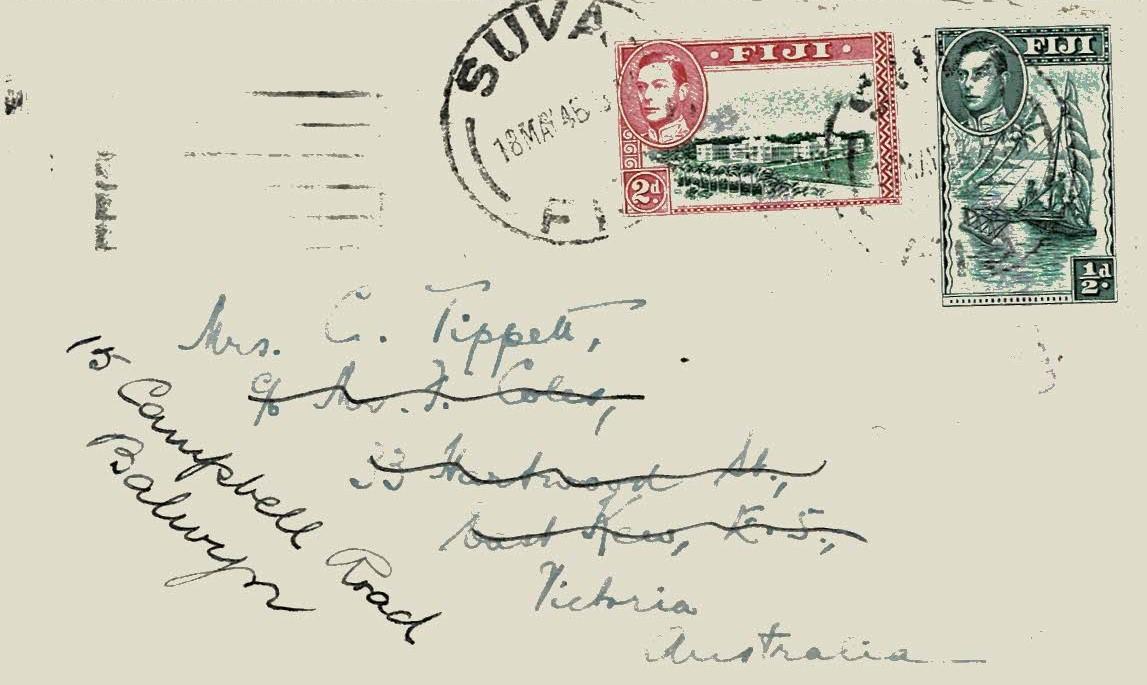 SUVA
18 MAY 46
FI
FIJI
2d
FIJI
½d.
MAY
Mrs. C. Tippett,
c/o Mr. F. Coles,
33 Hartwood St.,
East Kew, E.5.,
Victoria
Australia
15 Campbell Road
Balwyn